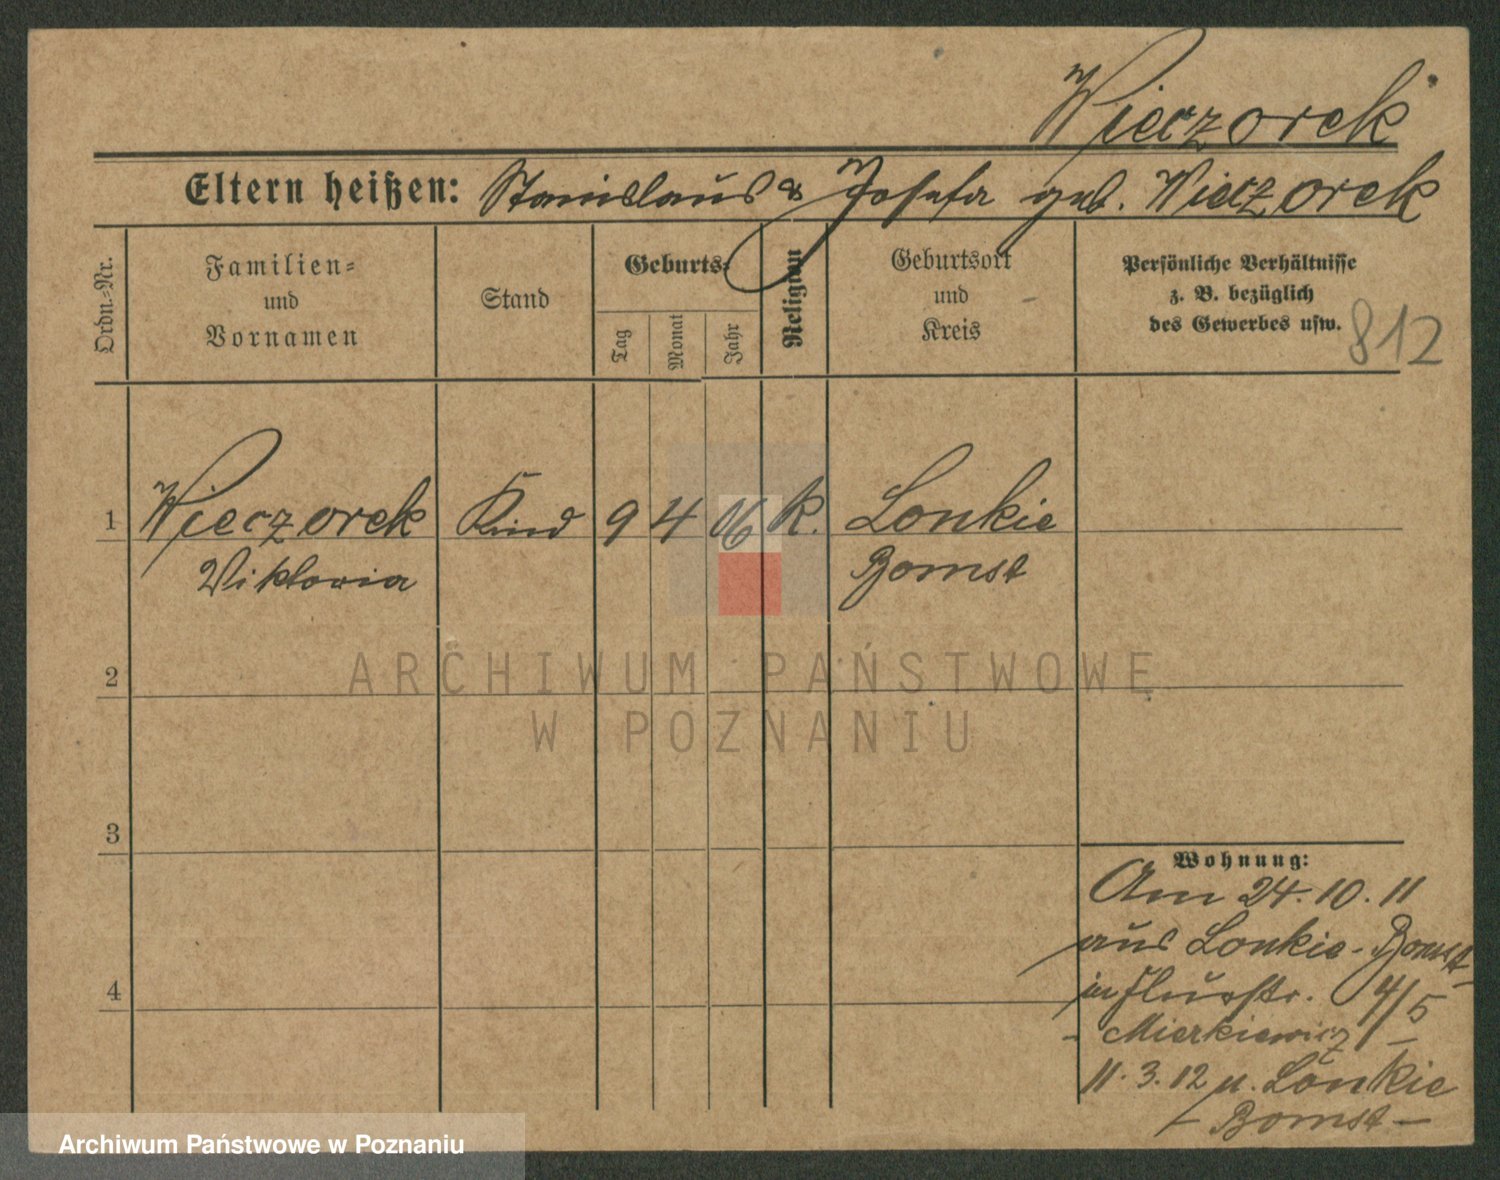 Wieczorek
Eltern heißen: Stanislaus & Josefa geb. Wieczorek
Ordn.=Nr.
Familien=
und
Vornamen
Stand
Geburts=
Tag
Monat
Jahr
Religion
Geburtsort
und
Kreis
Persönliche Verhältnisse
z. B. bezüglich
des Gewerbes usw.
812
1 Wieczorek Kind 9 4 06 k. Lonkie
Viktoria Bomst
ARCHIWUM PAŃSTWOWE
W POZNANIU
2
3
4
Wohnung:
Am 24.10.11
aus Lonkie - Bomst
in Flurstr. 4/5
- Mierkiewicz -
11.3.12 n. Lonkie
- Bomst -
Archiwum Państwowe w Poznaniu